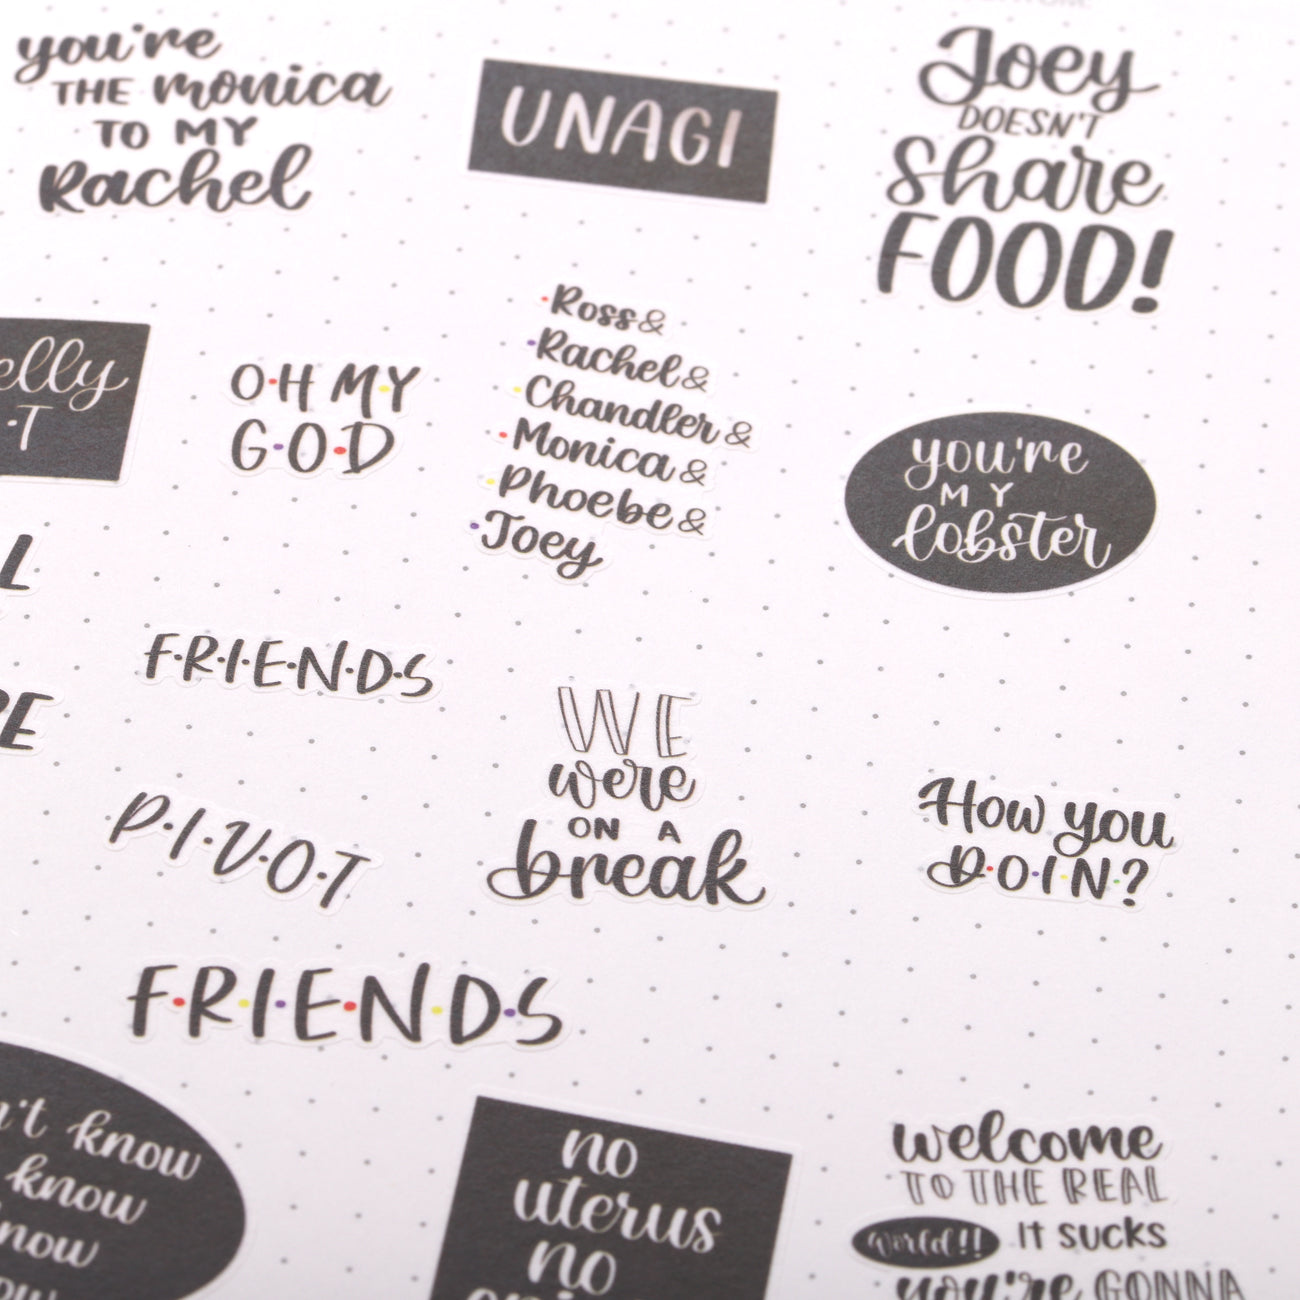 you're
THE monica
TO MY
Rachel
UNAGI
Joey
DOESN'T
Share
FOOD!
elly
·T
O·H M·Y
G·O·D
·Ross &
·Rachel &
·Chandler &
·Monica &
·Phoebe &
·Joey
you're
MY
lobster
L
E
F·R·I·E·N·D·S
P·I·V·O·T
WE
were
ON A
break
How you
D·O·I·N·?
F·R·I·E·N·D·S
't know
know
now
no
uterus
no
welcome
TO THE REAL
World!! IT SUCKS
you're GONNA